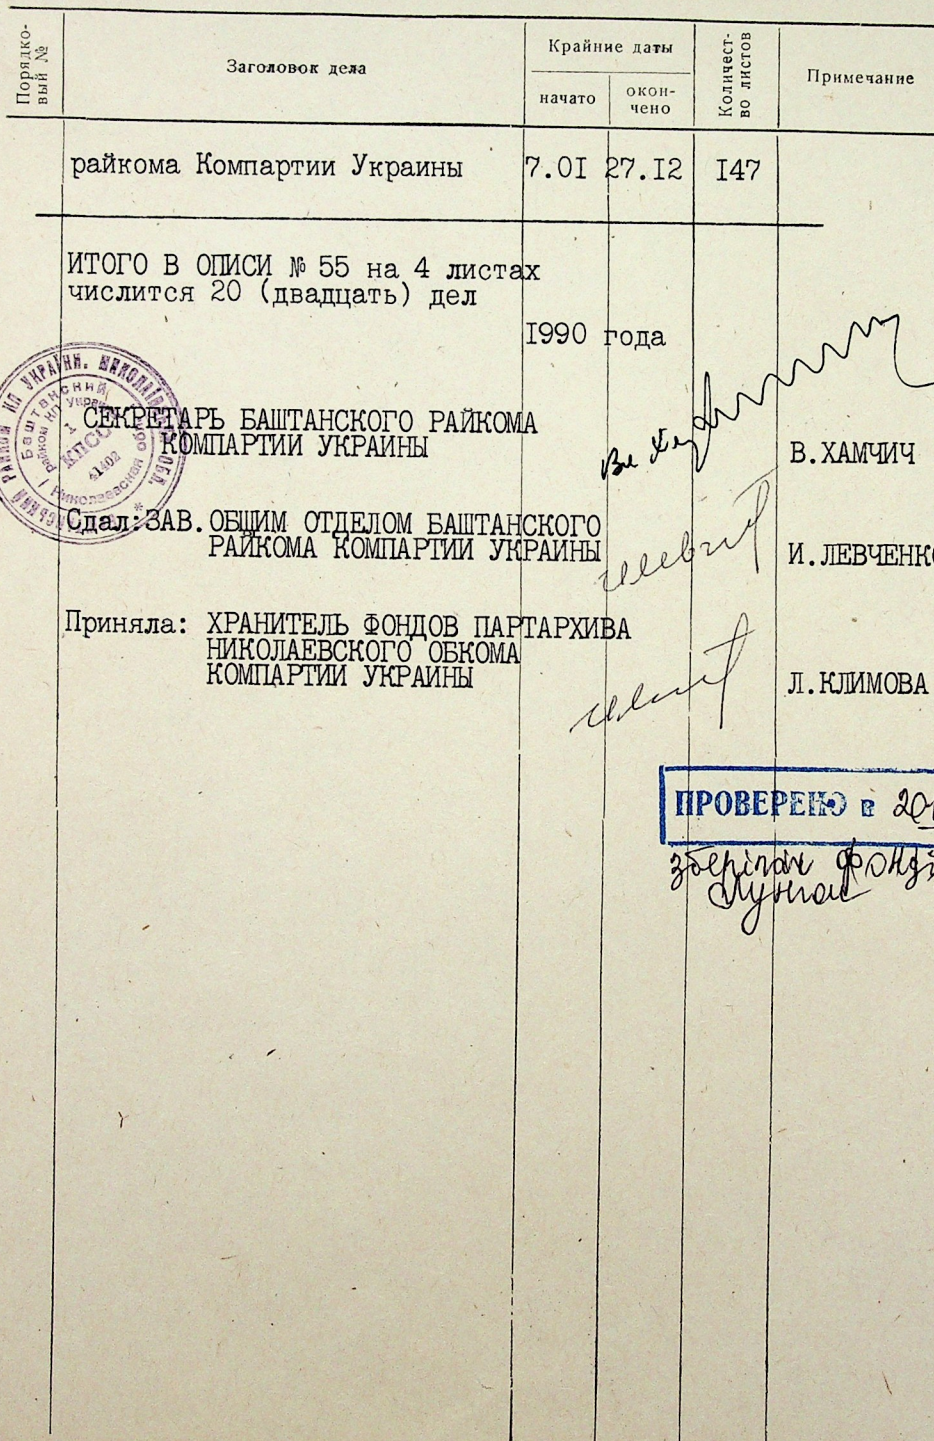 Порядко-
вый №
Заголовок дела
Крайние даты
начато
окон-
чено
Количест-
во листов
Примечание
райкома Компартии Украины 7.01 27.12 147
ИТОГО В ОПИСИ № 55 на 4 листах
числится 20 (двадцать) дел
1990 года
СЕКРЕТАРЬ БАШТАНСКОГО РАЙКОМА
КОМПАРТИИ УКРАИНЫ
В.ХАМЧИЧ
Сдал: ЗАВ. ОБЩИМ ОТДЕЛОМ БАШТАНСКОГО
РАЙКОМА КОМПАРТИИ УКРАИНЫ
И.ЛЕВЧЕНКО
Приняла: ХРАНИТЕЛЬ ФОНДОВ ПАРТАРХИВА
НИКОЛАЕВСКОГО ОБКОМА
КОМПАРТИИ УКРАИНЫ
Л.КЛИМОВА
Баштанский
райком КП Украины
КПСС
41402
Николаевская
ПРОВЕРЕНО в
зберігач фонді